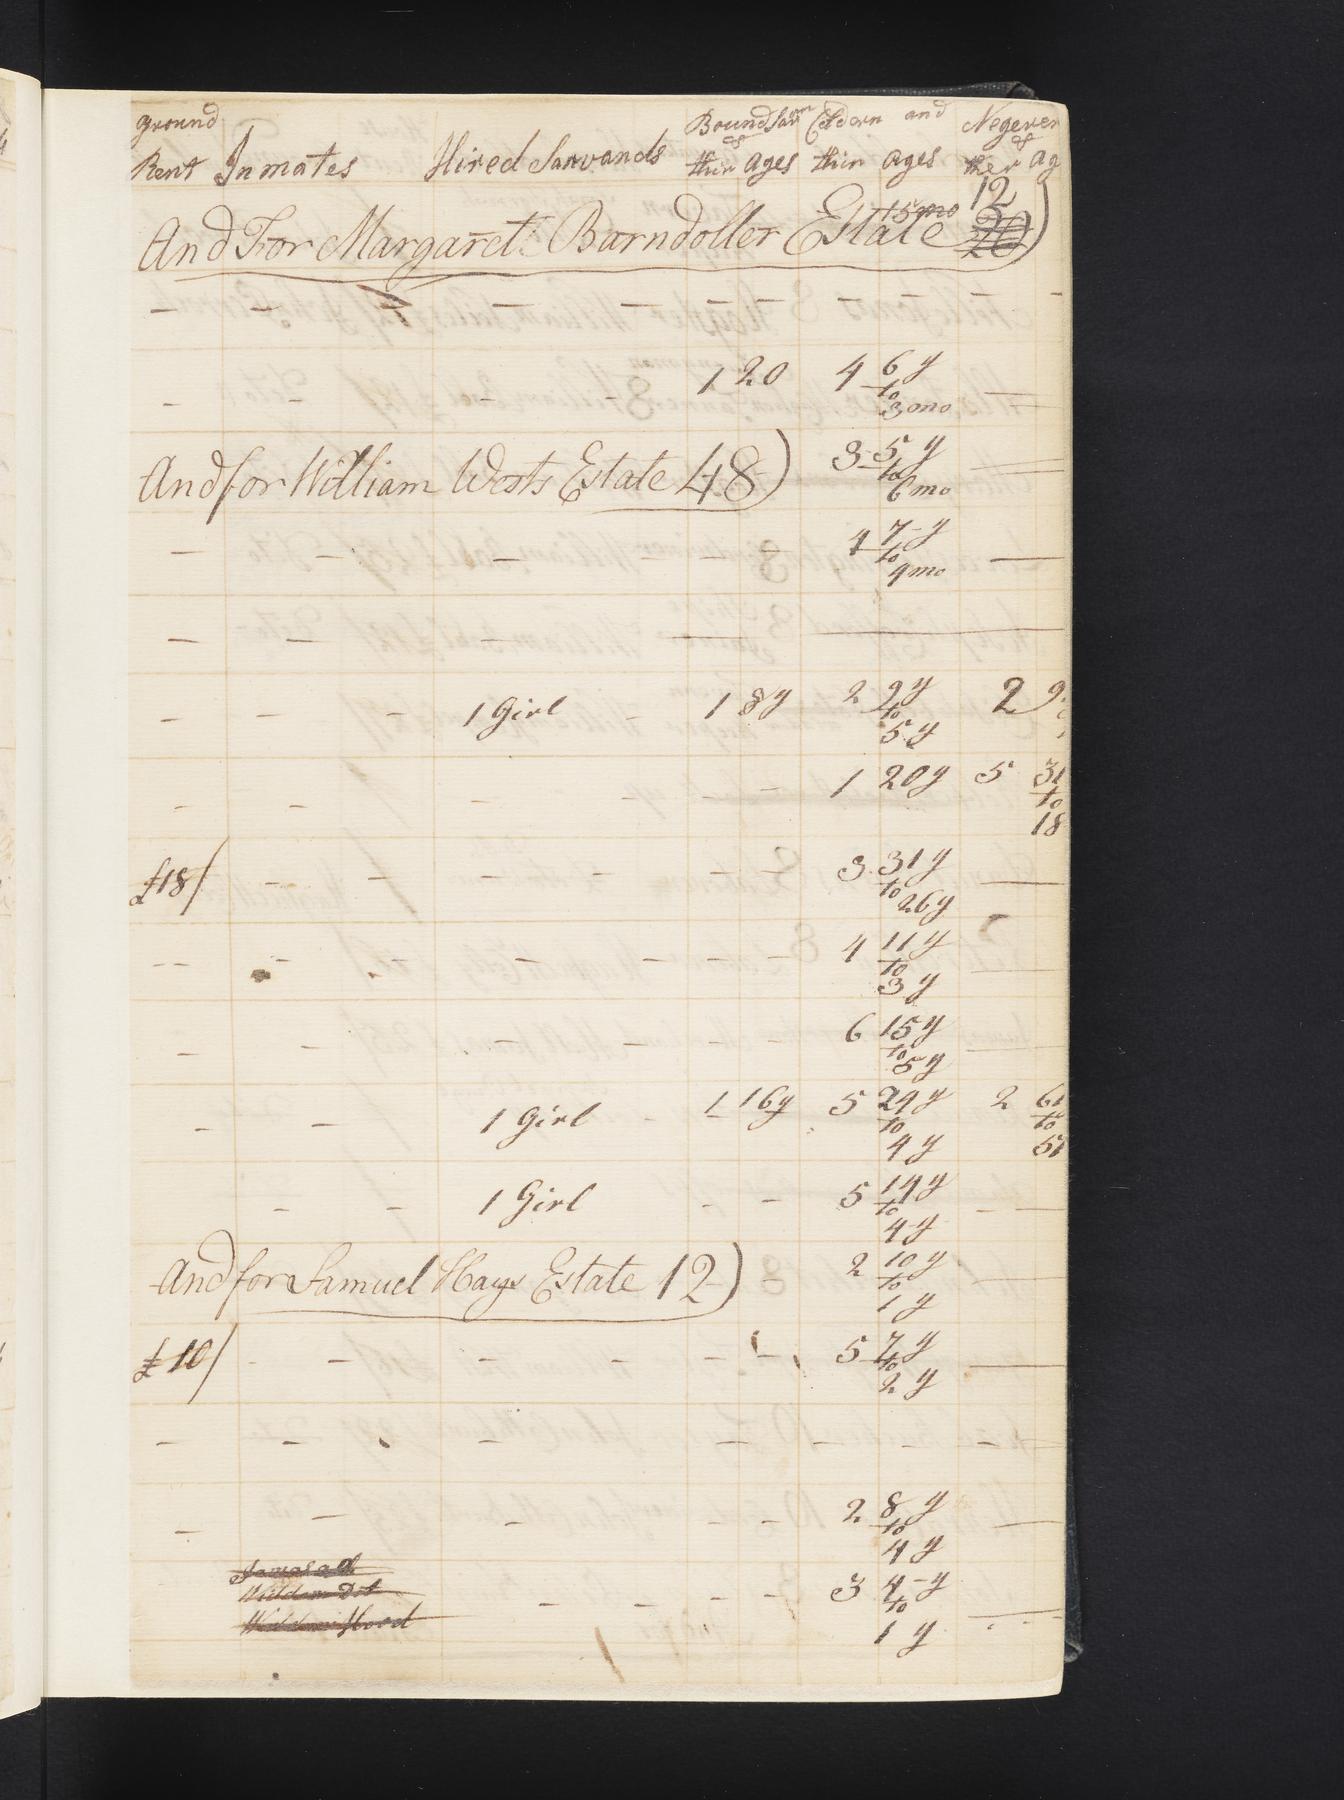 Ground Rent Inmates Hired Sarvands Bound Sarvon & thir Ages Cildorn and thir Ages Negerer & ther Ag
15 mo 12
And For Margaret Barndoller Estate 20)
— — — — — — — — — — —
— — — — 1 20 4 6 y to 3 mo —
And for William Wests Estate 48) 3 5 y to 6 mo —
— — — — — 4 7 y to 4 mo —
— — — — —
— — — 1 Girl — 1 8 y 2 9 y to 5 y 2 9
— — — — — — 1 20 y 5 31 to 18
£18/ — — — — — — 3 31 y to 26 y —
-- — - — — — — 4 11 y to 3 y —
— — — — — — 6 15 y to 5 y —
— — 1 Girl — 1 16 y 5 24 y to 4 y 2 61 to 51
— — 1 Girl - — 5 14 y to 4 y - —
And for Samuel Hays Estate 12) 2 10 y to 1 y
£10/ - — — — — — 5 7 y to 2 y —
— — — — — — — —
— — — — — 2 8 y to 4 y —
— — — — 3 4 y to 1 y —